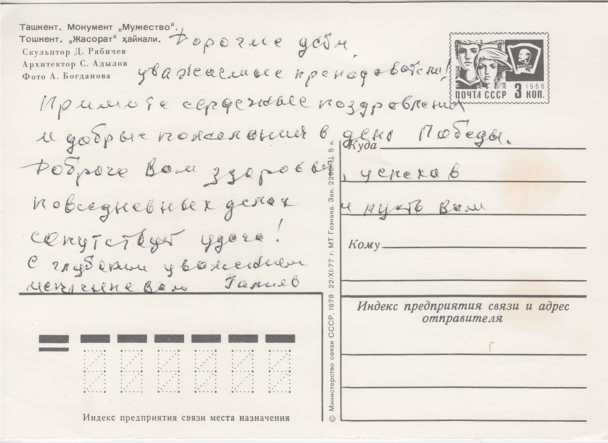 Ташкент. Монумент „Мужество".
Тошкент. „Жасорат" ҳайкали.
Скульптор Д. Рябичев
Архитектор С. Адылов
Фото А. Богданова
Дорогие дети,
уважаемые преподаватели!
Примите сердечные поздравления
и добрые пожелания в день Победы.
Доброго Вам здоровья, успехов
повседневных делах и пусть Вам
сопутствует удача!
С глубоким уважением
Вам Галиев
ПОЧТА СССР 3 КОП.
1966
Куда
Кому
Индекс предприятия связи и адрес
отправителя
Индекс предприятия связи места назначения
© Министерство связи СССР, 1978 22/XI-77 г. МТ Гознака. Зак.